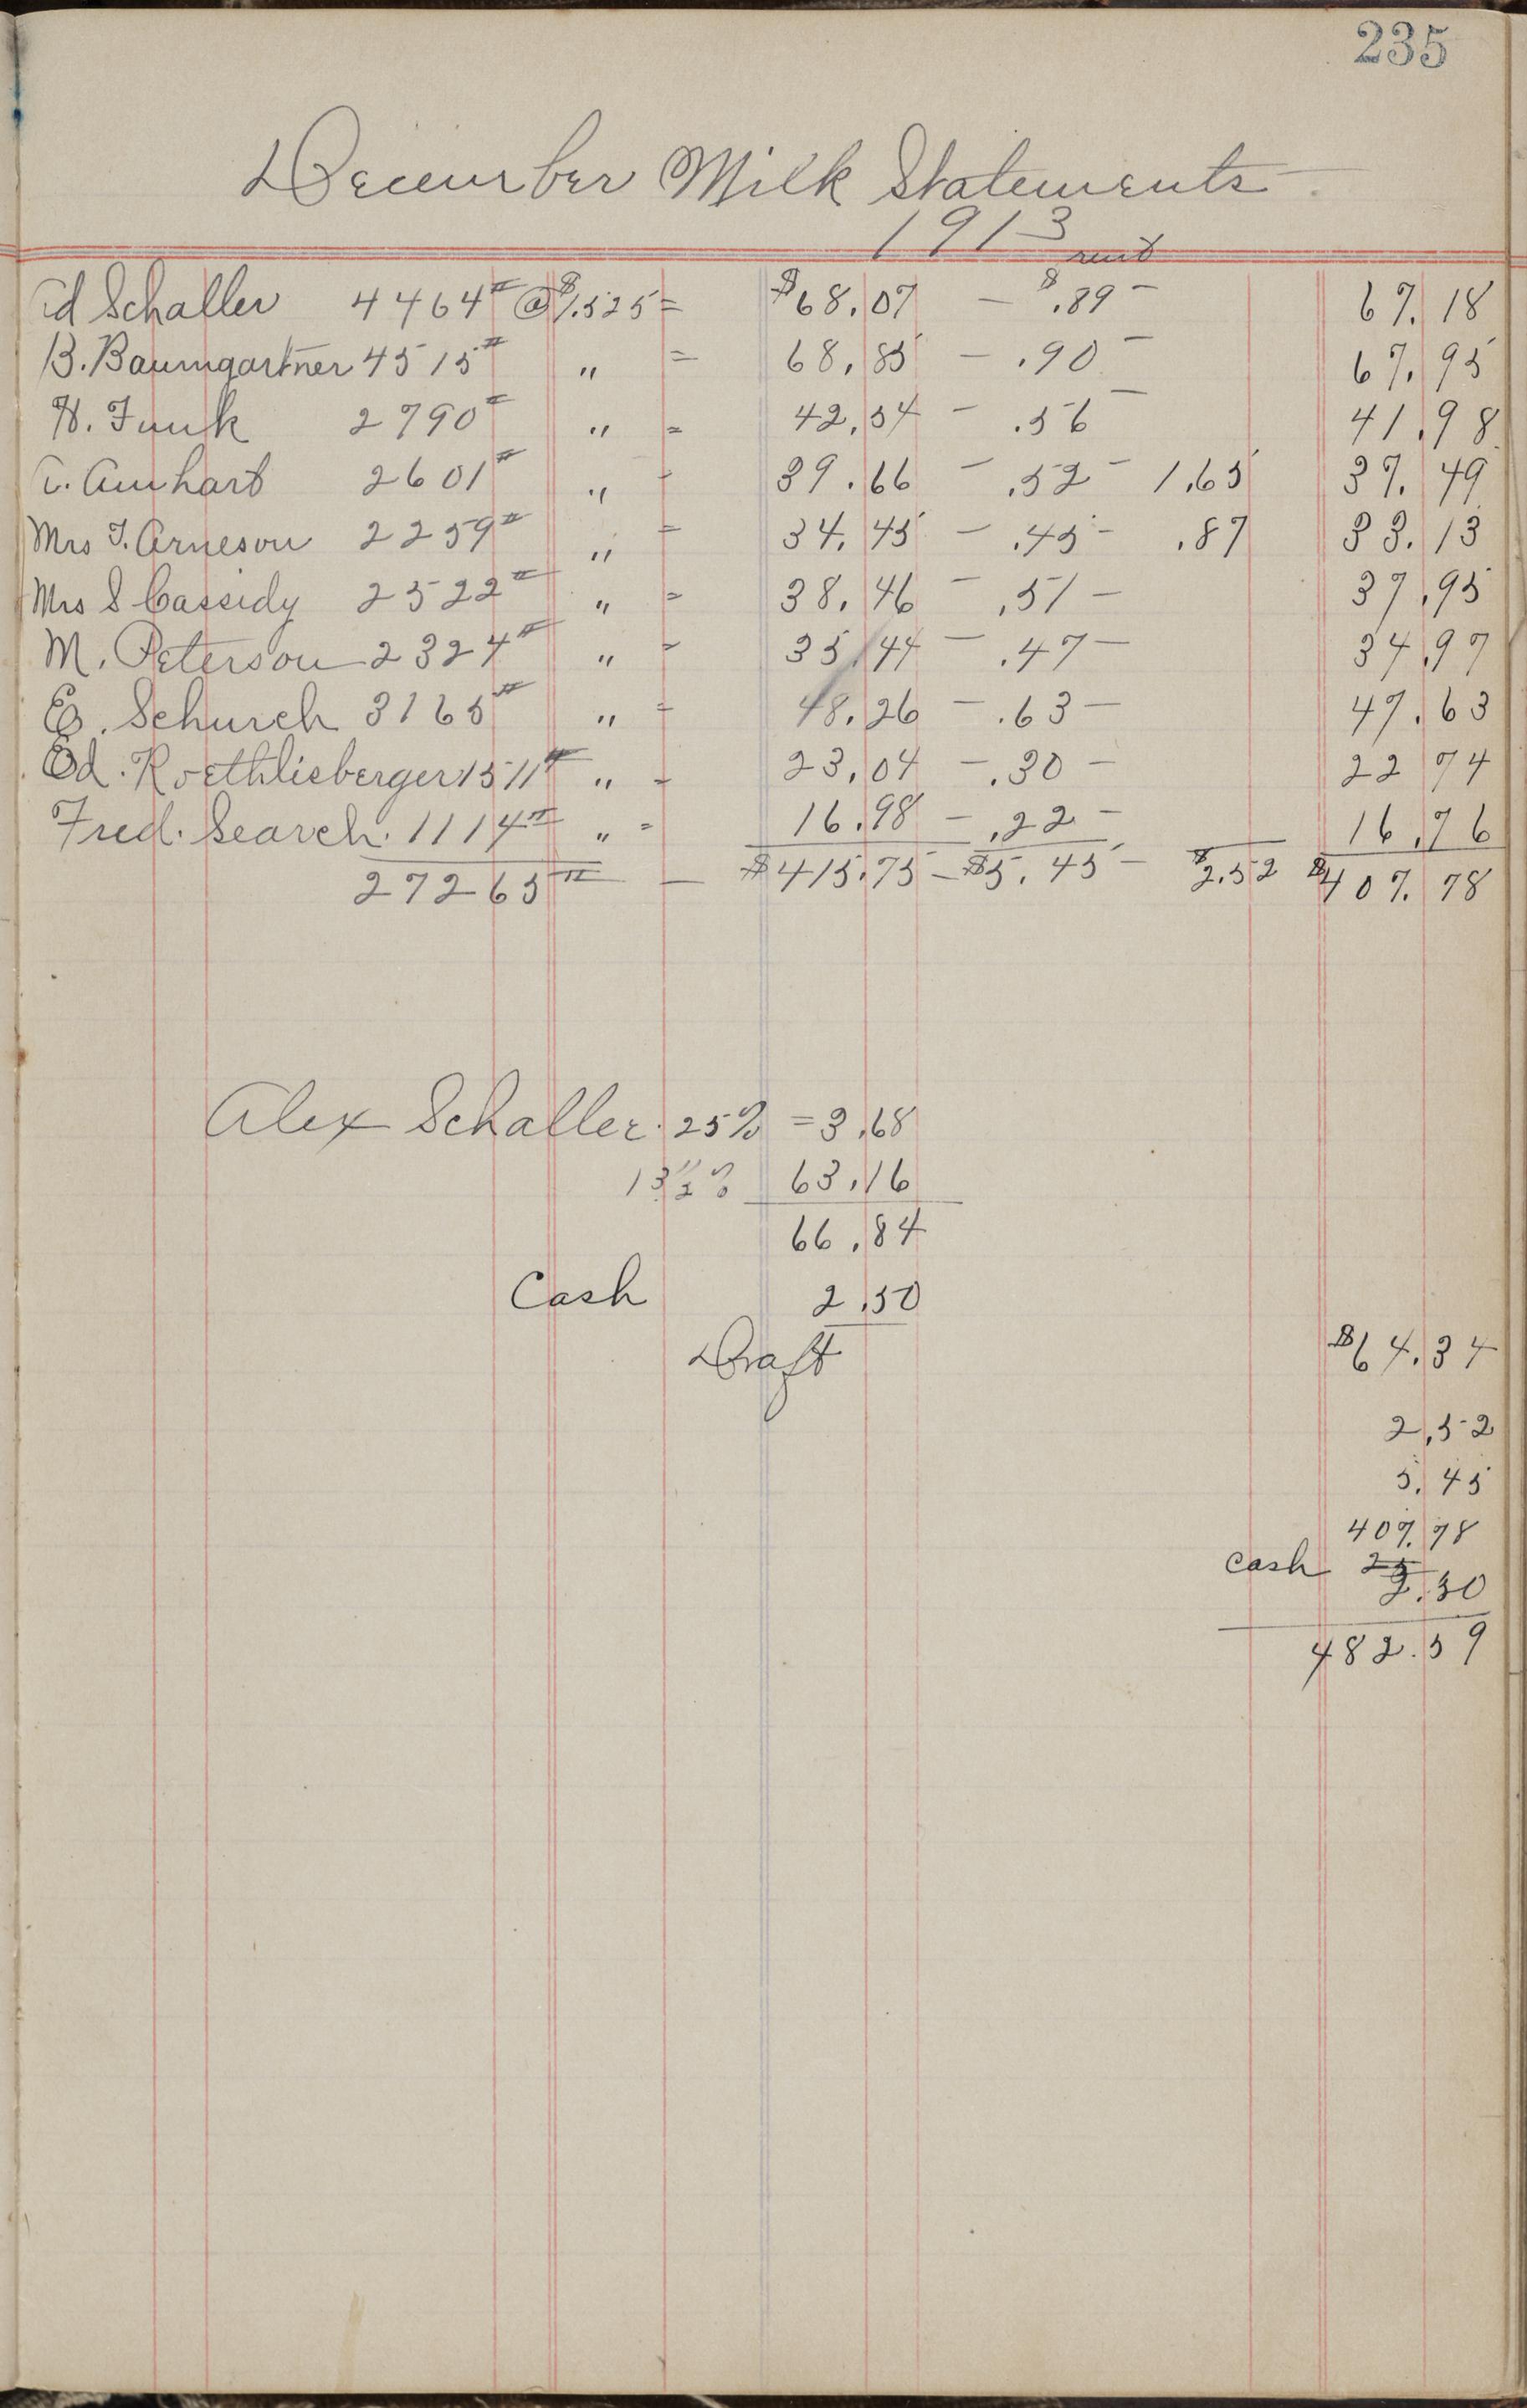 235
December Milk Statements
1913
rent
Ed Schaller 4464# @ $1.525 = $68.07 — $.89 — 67.18
B. Baumgartner 4515# " = 68.85 — .90 — 67.95
H. Funk 2790# " = 42.54 — .56 — 41.98
A. Amhart 2601# " = 39.66 — .52 — 1.65 37.49
Mrs T. Arneson 2259# " = 34.45 — .45 — .87 33.13
Mrs S Cassidy 2522# " = 38.46 — .51 — 37.95
M. Peterson 2324# " = 35.44 — .47 — 34.97
E. Schurch 3165# " = 48.26 — .63 — 47.63
Ed. Roethlisberger 1511# " = 23.04 — .30 — 22 74
Fred. Search. 1114# " = 16.98 — .22 — 16.76
27265# — $415.75 — $5.45 — $2.52 $407.78
Alex Schaller. 25% = 3.68
13 1/2 % 63.16
66.84
Cash 2.50
Draft $64.34
2.52
5.45
407.78
cash 25
2.50
482.59